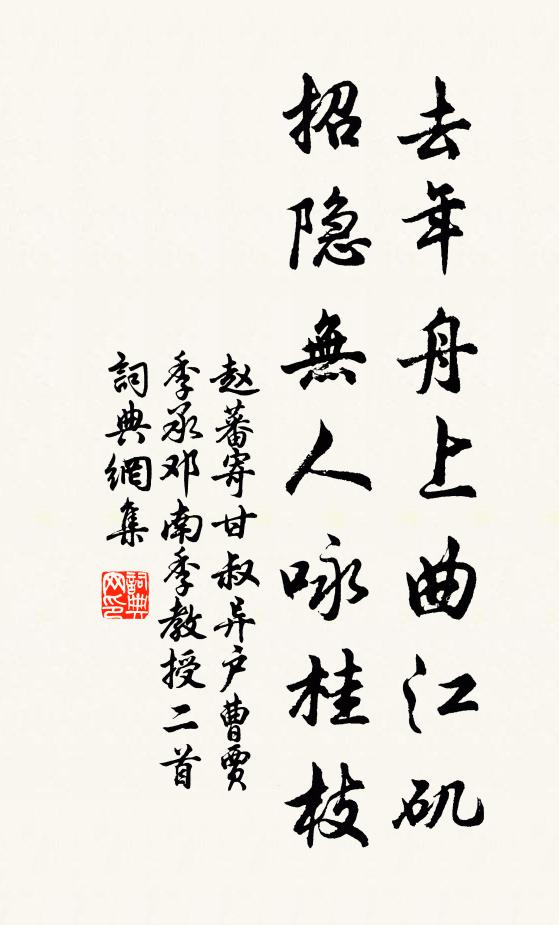 去年舟上曲江矶
招隐無人咏桂枝
赵蕃寄甘叔异户曹贾
季承邓南季教授二首
詞典網集
詞典
网印